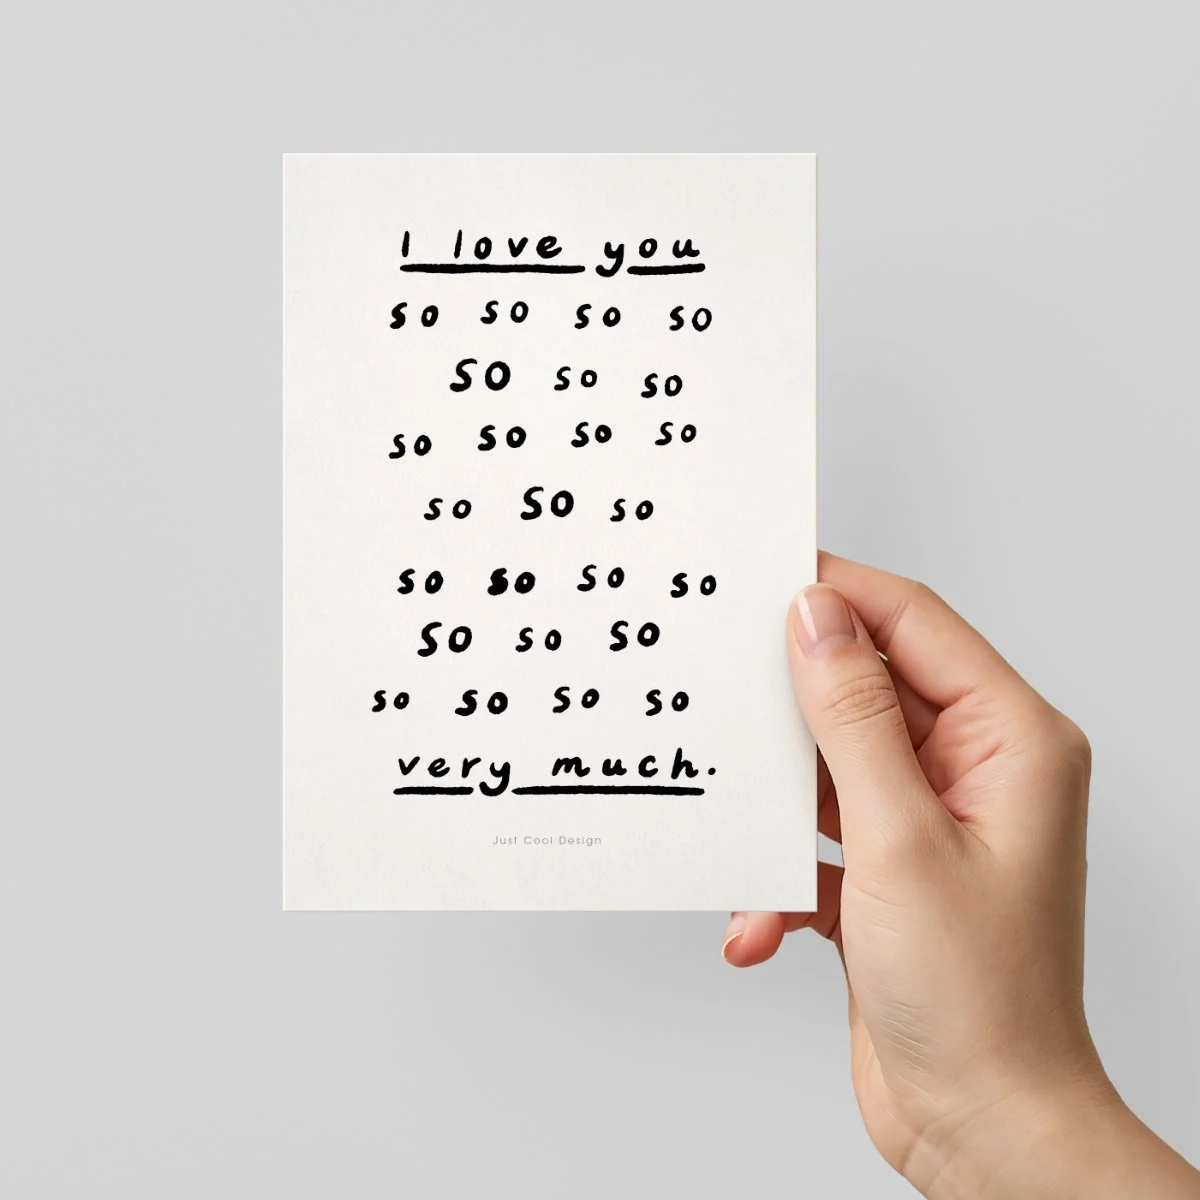 I love you
so so so so
so so so
so so so so
so so so
so so so so
so so so
so so so so
very much.
Just Cool Design